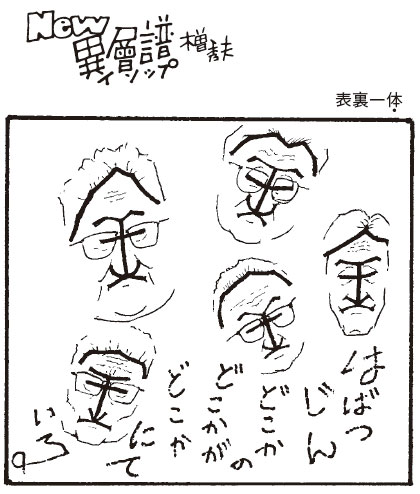 New
異層譜
イソップ
表裏一体
はばつ
じん
どこかの
どこかが
どこか
にて
いる